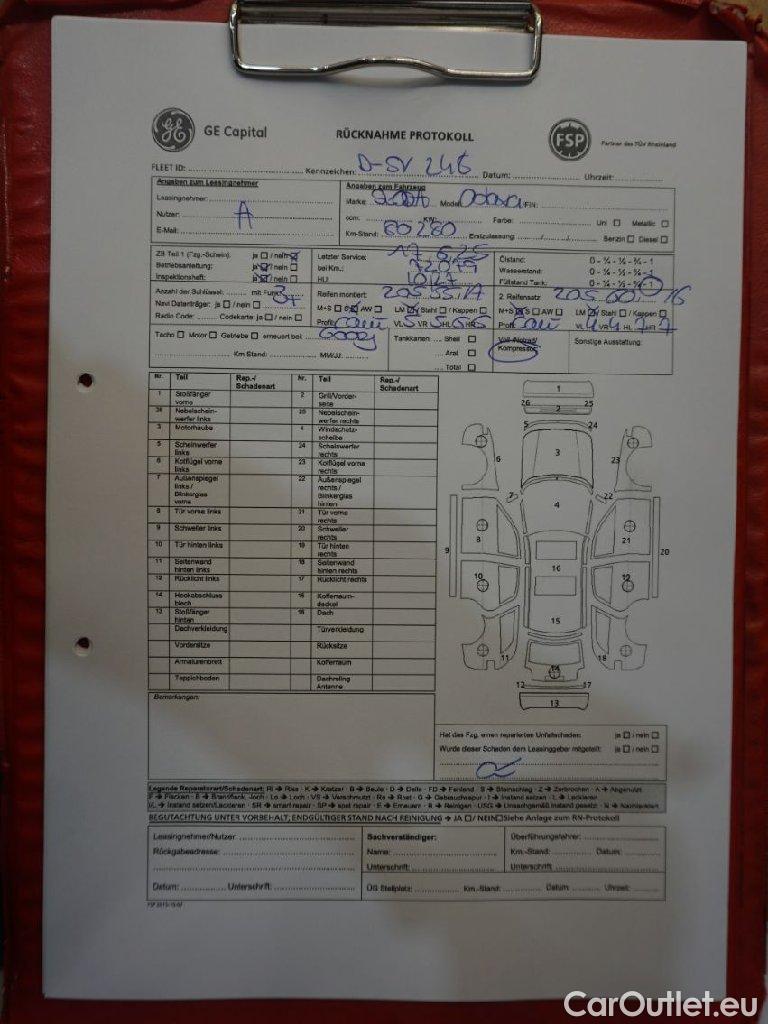 GE Capital
RÜCKNAHME PROTOKOLL
FSP
Partner des TÜV Rheinland
FLEET ID: Kennzeichen: D-SV 246 Datum: Uhrzeit:
Angaben zum Leasingnehmer
Leasingnehmer:
Nutzer: A
E-Mail:
Angaben zum Fahrzeug
Marke: Skoda Model: Octavia FIN:
ccm: KW: Farbe: Uni ☐ Metallic ☐
Km-Stand: 80280 Erstzulassung: Benzin ☐ Diesel ☐
ZB Teil 1 (Fzg.-Schein). ja ☐ / nein ☒
Betriebsanleitung: ja ☒ / nein ☐
Inspektionsheft: ja ☒ / nein ☐
Letzter Service:
bei Km.:
HU
Ölstand: 0 - ¼ - ½ - ¾ - 1
Wasserstand: 0 - ¼ - ½ - ¾ - 1
Füllstand Tank: 0 - ¼ - ½ - ¾ - 1
Anzahl der Schlüssel: mit Funk
Navi Datenträger: ja ☐ / nein ☐
Radio Code: Codekarte ja ☐ / nein ☐
Reifen montiert: 205 55 17
M+S ☐ S ☒ AW ☐ LM ☒ / Stahl ☐ / Kappen ☐
Profil: VL 5 VR 5 HL HR
2. Reifensatz 205 60 16
M+S ☒ S ☐ AW ☐ LM ☒ / Stahl ☐ / Kappen ☐
Profil VL 4 VR 4 HL 7 HR 7
Tacho ☐ Motor ☐ Getriebe ☐ erneuert bei:
Km Stand: MM/JJ:
Tankkarten Shell ☐
Aral ☐
Total ☐
Kompressor
Sonstige Ausstattung:
Nr. Teil Rep.-/ Schadenart Nr. Teil Rep.-/ Schadenart
1 Stoßfänger vorne 2 Grill/Vorderseite
Nebelscheinwerfer links Nebelscheinwerfer rechts
3 Motorhaube 4 Windschutzscheibe
5 Scheinwerfer links 24 Scheinwerfer rechts
6 Kotflügel vorne links 23 Kotflügel vorne rechts
7 Außenspiegel links / Blinkerglas vorne 22 Außenspiegel rechts / Blinkerglas hinten
8 Tür vorne links 21 Tür vorne rechts
9 Schweller links 20 Schweller rechts
10 Tür hinten links 19 Tür hinten rechts
11 Seitenwand hinten links 18 Seitenwand hinten rechts
12 Rücklicht links 17 Rücklicht rechts
14 Heckabschluss blech Kofferraumdeckel
13 Stoßfänger hinten 16 Dach
Dachverkleidung Türverkleidung
Vordersitze Rücksitze
Armaturenbrett Kofferraum
Teppichboden Dachreling Antenne
Bemerkungen:
Hat das Fzg. einen reparierten Unfallschaden: ja ☐ / nein ☐
Wurde dieser Schaden dem Leasinggeber mitgeteilt: ja ☐ / nein ☐
Legende Reparaturart/Schadenart: RI → Riss - K → Kratzer - B → Beule - D → Delle - FD → Fehlend - S → Steinschlag - Z → Zerbrochen - A → Abgenutzt
F → Flecken - B → Brandfleck, Joch - Lo → Loch - VS → Verschmutzt - Ro → Rost - G → Gebrauchsspur - I → Instand setzen - L → Lackieren
I/L → Instand setzen/Lackieren - SR → smart repair - SP → spot repair - E → Erneuern - R → Reinigen - USG → Unsachgemäß instand gesetzt - N → Nachlackiert
BEGUTACHTUNG UNTER VORBEHALT, ENDGÜLTIGER STAND NACH REINIGUNG → JA ☐ / NEIN ☐ Siehe Anlage zum RN-Protokoll
Leasingnehmer/Nutzer
Rückgabeadresse:
Datum: Unterschrift:
Sachverständiger:
Name:
Unterschrift:
Überführungsfahrer:
Km.-Stand: Datum:
Unterschrift
ÜG Stellplatz: Km.-Stand: Datum Uhrzeit:
CarOutlet.eu